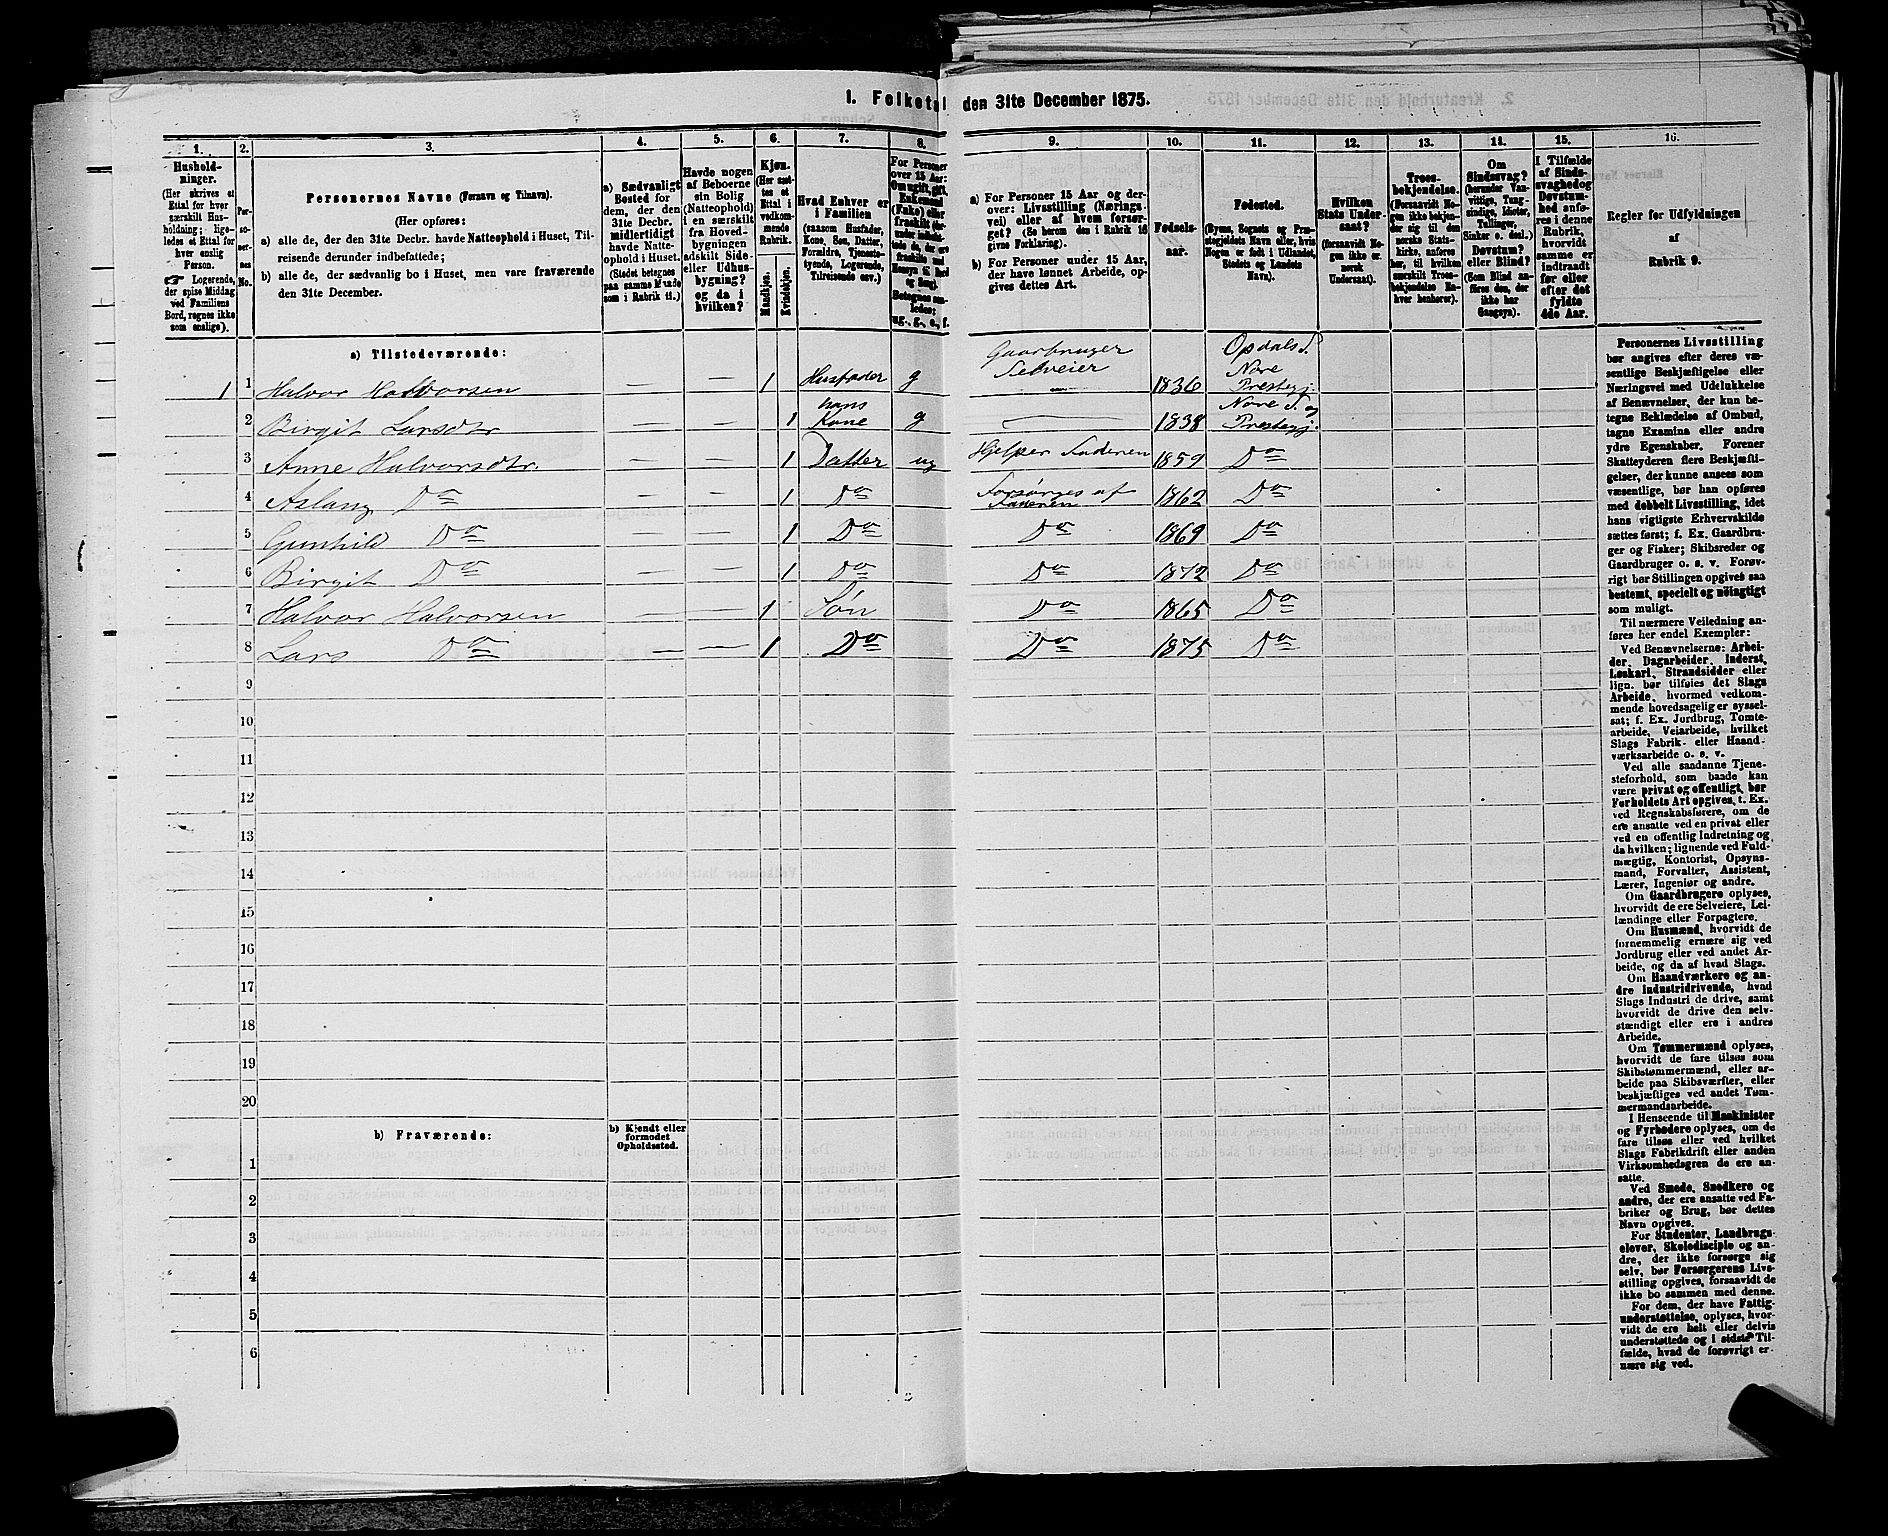 1. Folketal den 31te December 1875.
1.
2.
3.
4.
5.
6.
7.
8.
9.
10.
11.
12.
13.
14.
15.
16.
Husholdninger.
(Her skrives et
Ettal for hver
særskilt Husholdning; ligeledes et Ettal for
hver enslig
Person.
Logerende,
der spise Middag
ved Familiens
Bord, regnes ikke
som enslige).
Personernes No.
Personernes Navne (Fornavn og Tilnavn).
(Her opføres:
a) alle de, der den 31te Decbr. havde Natteophold i Huset, Tilreisende derunder indbefattede;
b) alle de, der sædvanlig bo i Huset, men vare fraværende
den 31te December.
a) Sædvanligt
Bosted for
dem, der den
31te Decbr.
midlertidigt
havde Natteophold i Huset.
(Stedet betegnes
paa samme Maade
som i Rubrik 11.)
Havde nogen
af Beboerne
sin Bolig
(Natteophold)
i en særskilt
fra Hovedbygningen
adskilt Side-
eller Udhusbygning?
og da i
hvilken?
Kjøn.
(Her sættes et
Ettal i
vedkommende
Rubrik.
Mandkjøn.
Kvindekjøn.
Hvad Enhver er
i Familien
(saasom Husfader,
Kone, Søn, Datter,
Forældre, Tjenestetyende, Logerende,
Tilreisende osv.)
For Personer
over 15 Aar:
Om ugift, gift,
Enkemand
(Enke) eller
fraskilt
Betegnes saaledes:
ug., g., e., f.
a) For Personer 15 Aar og derover: Livsstilling (Næringsvei) eller af hvem forsørget? (Se herom den i Rubrik 16
givne Forklaring).
b) For Personer under 15 Aar,
der have lønnet Arbeide, opgives dettes Art.
Fødselsaar.
Fødested.
(Byens, Sognets og Præstegjeldets Navn eller, hvis
Nogen er født i Udlandet,
Stedets og Landets
Navn).
Hvilken
Stats Undersaat?
(forsaavidt Nogen ikke er
norsk
Undersaat).
Troesbekjendelse.
(Forsaavidt Nogen ikke bekjender sig til den
norske Statskirke, anføres
her, til hvilken
særskilt Troesbekjendelse Enhver henhører).
Om
Sindssvag?
(herunder Vanvittige, Tungsindige, Idioter,
Tullinger,
Sinker o. desl.)
Døvstum?
eller Blind?
(Som Blind anføres den, der
ikke har
Gangsyn).
I Tilfælde
af Sindssvaghed og
Døvstumhed anføres i denne
Rubrik,
hvorvidt
samme er
indtraadt
før eller
efter det
fyldte
4de Aar.
Regler for Udfyldningen
af
Rubrik 9.
a) Tilstedeværende:
1 1 Halvor Halvorsen — — 1 Husfader g Gaardbruger Selveier 1836 Opdals S. Nore Prestegj.
2 Birgit Larsdtr — — 1 hans Kone g — 1838 Nore S. og Prestegj.
3 Anne Halvorsdtr. — — 1 Datter ug Hjelper Faderen 1859 Do
4 Aslaug Do — — 1 Do Forsørges af Faderen 1862 Do
5 Gunhild Do — — 1 Do Do 1869 Do
6 Birgit Do — — 1 Do Do 1872 Do
7 Halvor Halvorsen — — 1 Søn Do 1865 Do
8 Lars Do — — 1 Do Do 1875 Do
9
10
11
12
13
14
15
16
17
18
19
20
b) Fraværende:
b) Kjendt eller
formodet
Opholdssted.
1
2
3
4
5
6
Personernes Livsstilling
bør angives efter deres væsentlige Beskjæftigelse eller
Næringsvei med Udelukkelse
af Benævnelser, der kun betegne Beklædelse af Ombud,
tagne Examina eller andre
ydre Egenskaber. Forener
Skatteyderen flere Beskjæftigelser, der kunne ansees som
væsentlige, bør han opføres
med dobbelt Livsstilling, idet
hans vigtigste Erhvervskilde
sættes først; f. Ex. Gaardbruger og Fisker; Skibsreder og
Gaardbruger o. s. v. Forøvrigt bør Stillingen opgives saa
bestemt, specielt og nøiagtigt
som muligt.
Til nærmere Veiledning anføres her endel Exempler:
Ved Benævnelserne: Arbeider, Dagarbeider, Inderst,
Løskarl, Strandsidder eller
lign. bør tilføies det Slags
Arbeide, hvormed vedkommende hovedsagelig er sysselsat; f. Ex. Jordbrug, Tomtearbeide, Veiarbeide, hvilket
Slags Fabrik- eller Haandværksarbeide o. s. v.
Ved alle saadanne Tjenesteforhold, som baade kan
være privat og offentligt, bør
Forholdets Art opgives, t. Ex.
ved Regnskabsførere, om de
ere ansatte ved en privat eller
ved en offentlig Indretning og
da hvilken; lignende ved Fuldmægtig, Kontorist, Opsynsmand, Forvalter, Assistent,
Lærer, Ingeniør og andre.
Om Gaardbrugere oplyses,
hvorvidt de ere Selveiere, Leilændinge eller Forpagtere.
Om Husmænd, hvorvidt de
fornemmelig ernære sig ved
Jordbrug eller ved andet Arbeide, og da af hvad Slags.
Om Haandværkere og andre Industridrivende, hvad
Slags Industri de drive, samt
hvorvidt de drive den selvstændigt eller ere i andres
Arbeide.
Om Tømmermænd oplyses,
hvorvidt de fare tilsøs som
Skibstømmermænd, eller arbeide paa Skibsværfter, eller
beskjæftiges ved andet Tømmermandsarbeide.
I Henseende til Maskinister
og Fyrbødere oplyses, om de
fare tilsøs eller ved hvilket
Slags Fabrikdrift eller anden
Virksomhedsgren de ere ansatte.
Ved Smede, Snedkere og
andre, der ere ansatte ved Fabriker og Brug, bør dettes
Navn opgives.
For Studenter, Landbrugselever, Skoledisciple og andre, der ikke forsørge sig
selv, bør Forsørgerens Livsstilling opgives, forsaavidt de
ikke bo sammen med denne.
For dem, der have Fattigunderstøttelse, oplyses, hvorvidt de ere helt eller delvis
understøttede og i sidste Tilfælde, hvad de forøvrigt ernære sig ved.